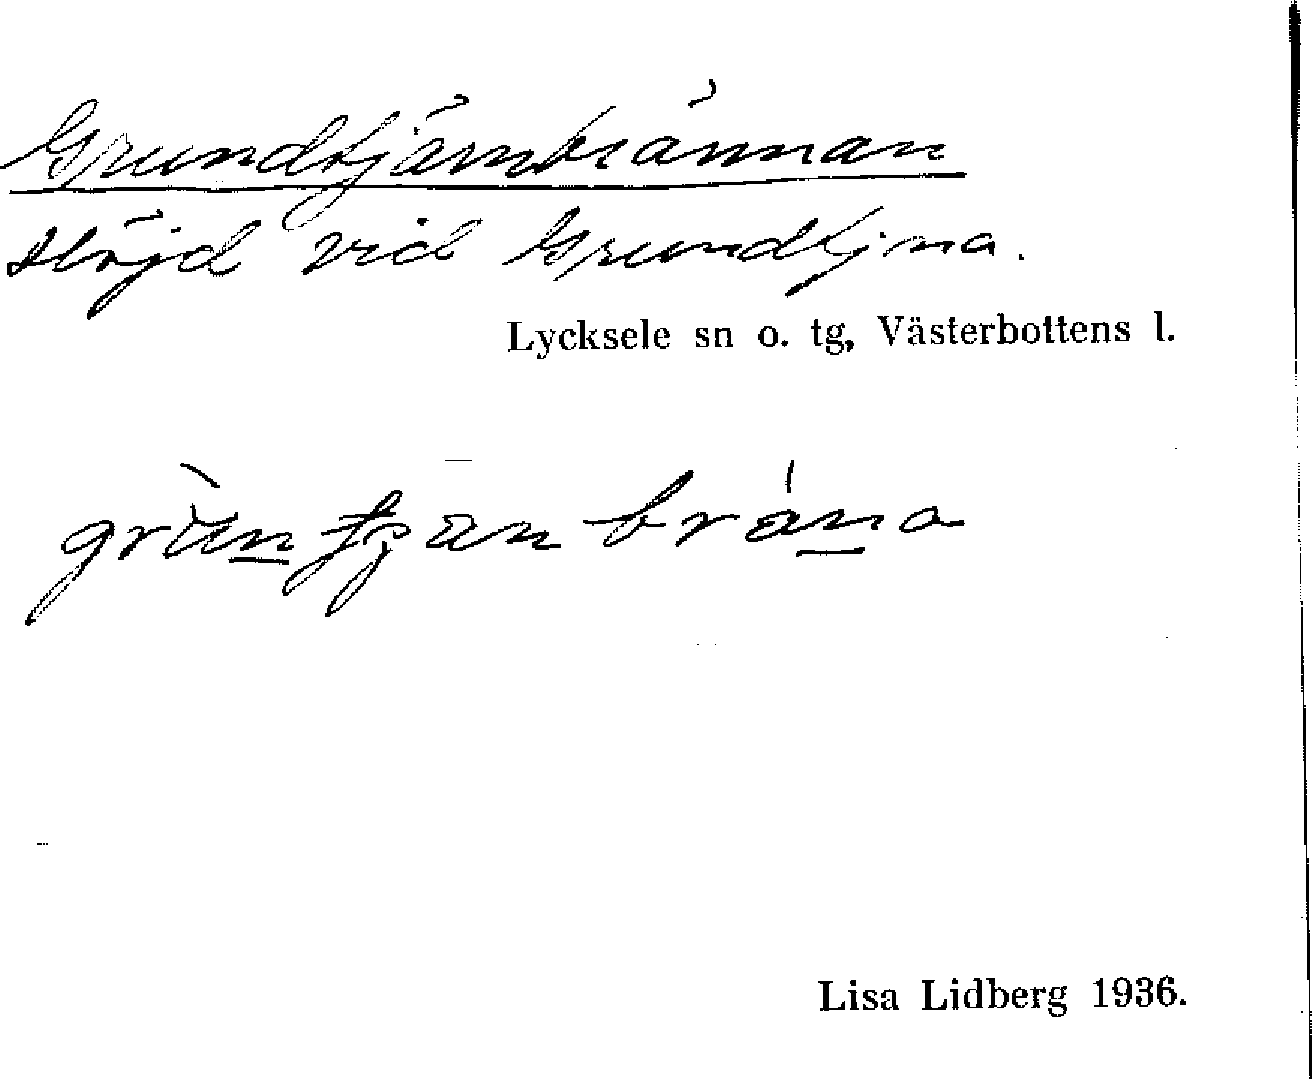 Grundtjärnbrännan
Höjd vid Grundtjna.
Lycksele sn o. tg, Västerbottens l.
Lisa Lidberg 1936.